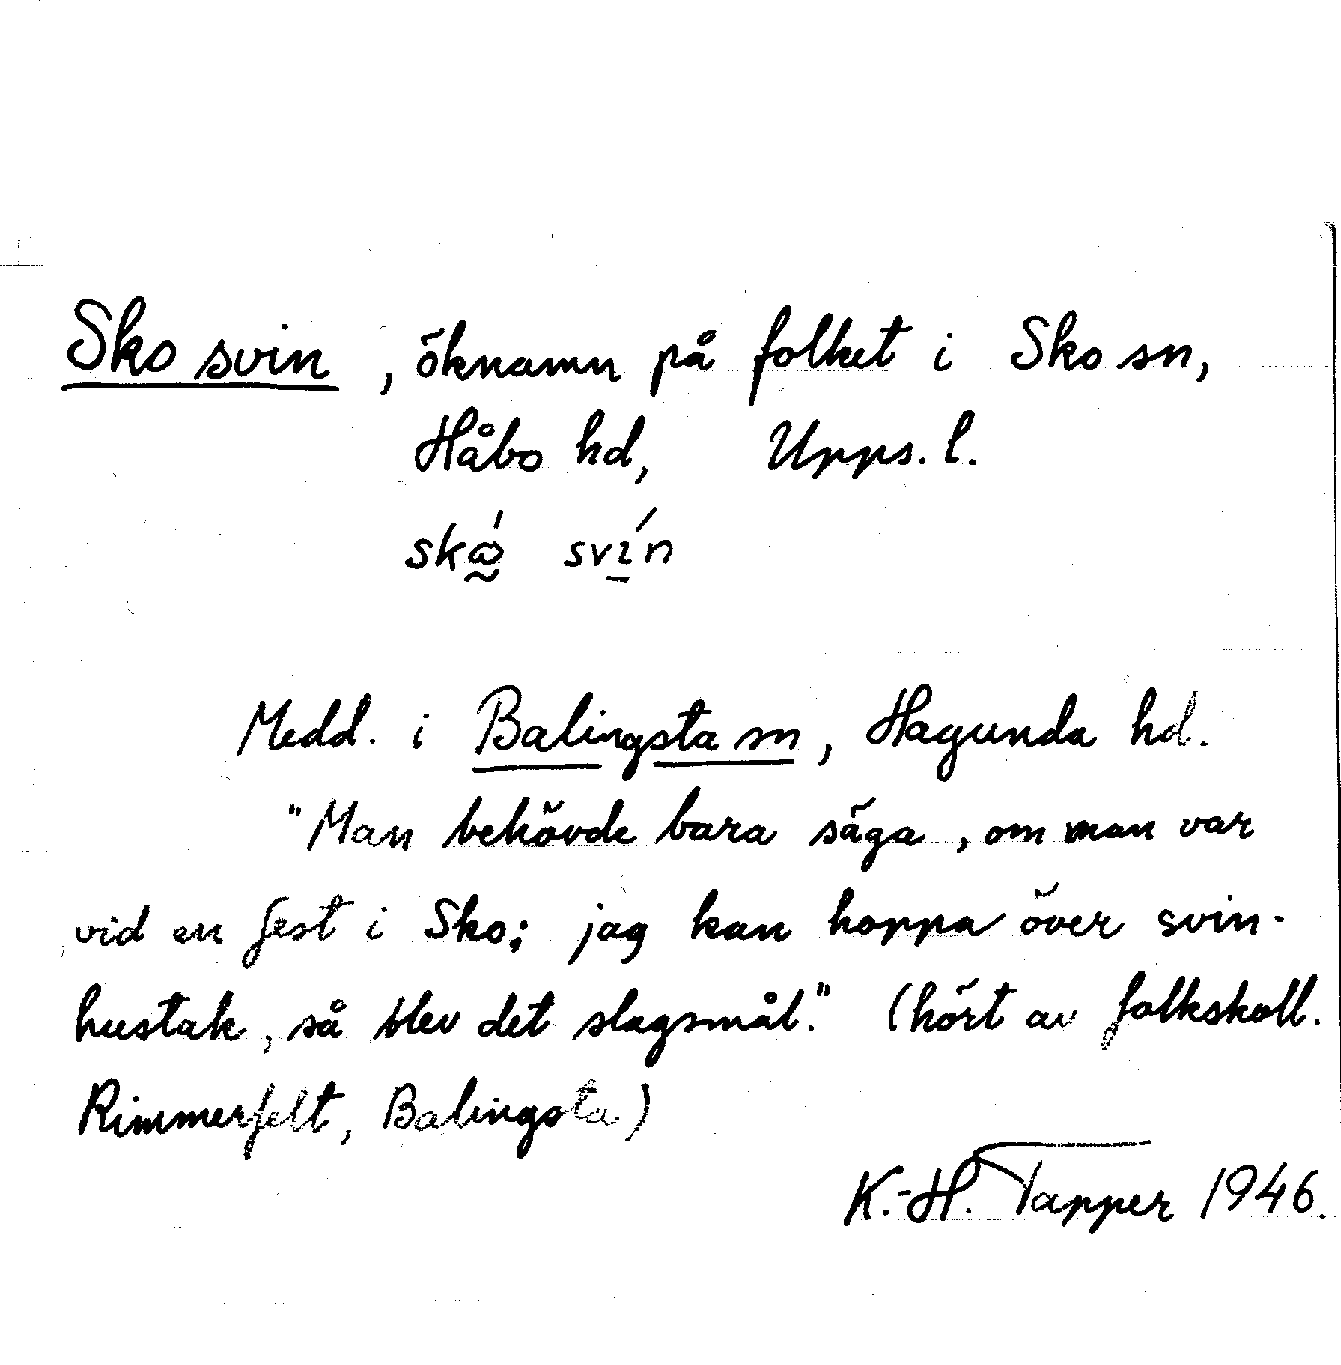 Sko svin, öknamn på folket i Sko sn,
Håbo hd, Upps. l.
svín
Medd. i Balingsta sn, Hagunda hd.
"Man behövde bara säga, om man var
vid en fest i Sko; jag kan hoppa över svin-
hustak, så blev det slagsmål." (hört av folkskoll.
Rimmerfelt, Balingsta)
K.-H. Tapper 1946.